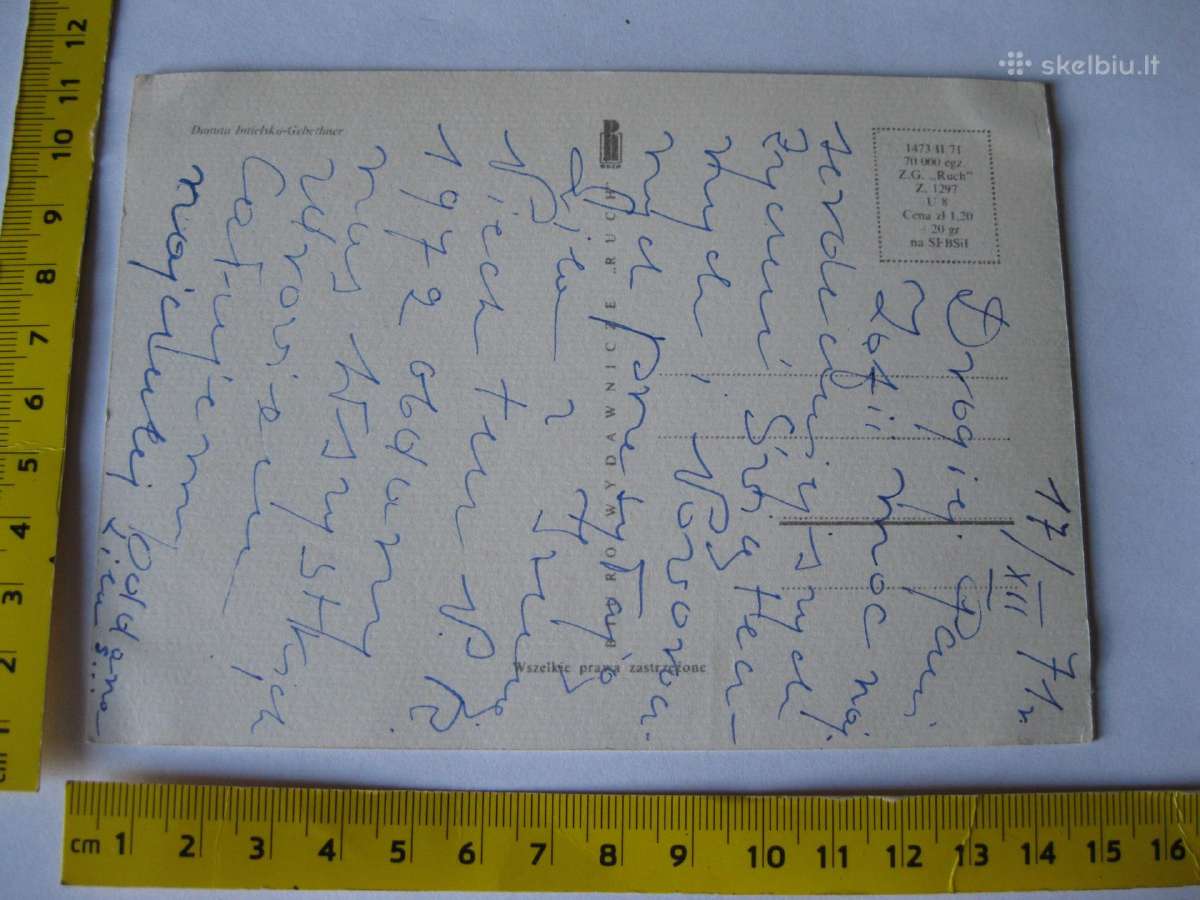 skelbiu.lt
Danuta Imielska-Gebethner
RUCH
BIURO WYDAWNICZE „RUCH”
Wszelkie prawa zastrzeżone
1473 II 71
70 000 egz.
Z.G. „Ruch”
Z. 1297
U 8
Cena zł 1,20
+ 20 gr
na SFBSiI
17/XII 71 r
Drogiej Pani
Zofii moc naj
serdeczniejszych
życzeń Świątecz-
nych i Noworocz-
nych przesyłają
Niech ten N. R.
1972 obdarzy
nas wszystkich
zdrowiem
Całujemy
najczulej
cm 1 2 3 4 5 6 7 8 9 10 11 12
cm 1 2 3 4 5 6 7 8 9 10 11 12 13 14 15 16